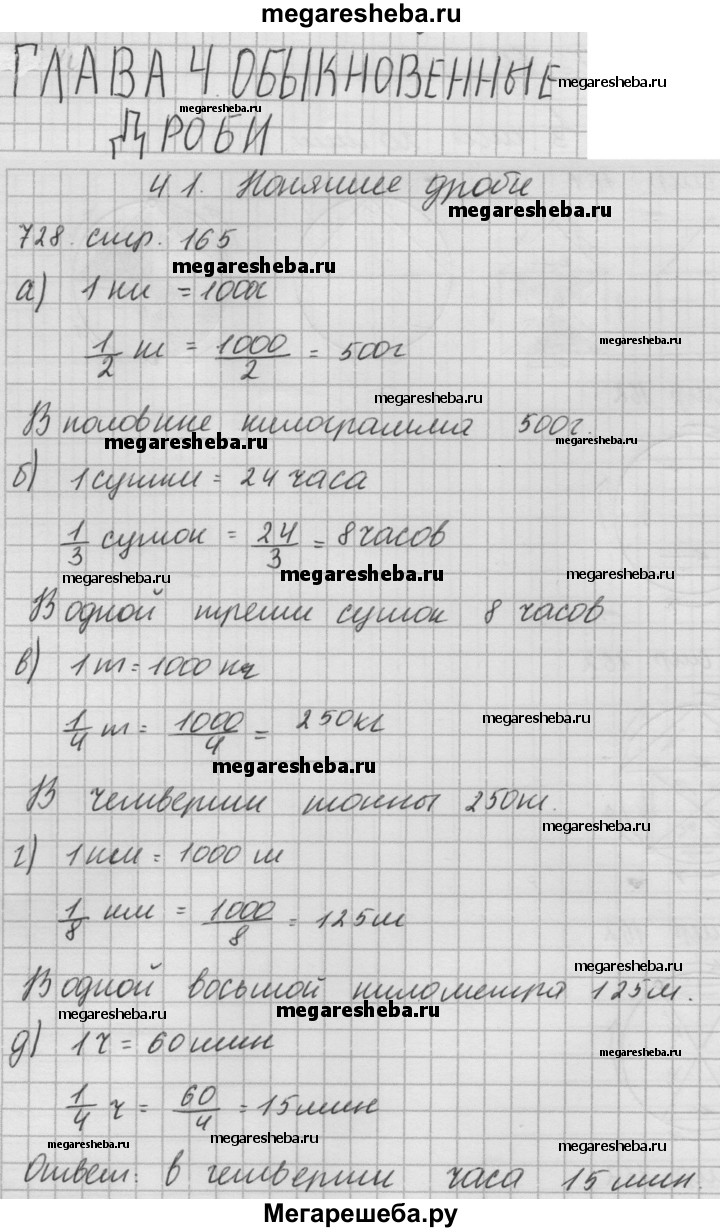 megaresheba.ru
ГЛАВА 4 ОБЫКНОВЕННЫЕ
megaresheba.ru
megaresheba.ru
ДРОБИ
4 1. Понятие дроби
megaresheba.ru
728. стр. 165
megaresheba.ru
а) 1 кг = 1000г
megaresheba.ru
1/2 кг = 1000/2 = 500г
megaresheba.ru
В половине килограмма 500г.
megaresheba.ru
megaresheba.ru
б) 1 сутки = 24 часа
1/3 суток = 24/3 = 8 часов
megaresheba.ru
megaresheba.ru
megaresheba.ru
В одной трети суток 8 часов
в) 1 т = 1000 кг
1/4 т = 1000/4 = 250кг
megaresheba.ru
megaresheba.ru
В четверти тонны 250кг.
megaresheba.ru
г) 1 км = 1000 м
1/8 км = 1000/8 = 125м
megaresheba.ru
В одной восьмой километра 125м.
megaresheba.ru
megaresheba.ru
megaresheba.ru
д) 1 ч = 60 мин
megaresheba.ru
1/4 ч = 60/4 = 15 мин
megaresheba.ru
megaresheba.ru
megaresheba.ru
Ответ: в четверти часа 15 мин.
Мегарешеба.ру